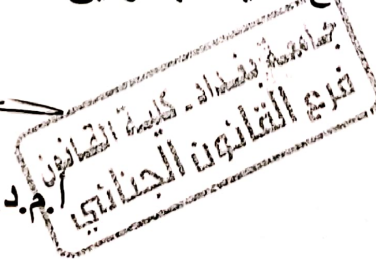 جامعة بغداد - كلية القانون
فرع القانون الجنائي
أ.م.د